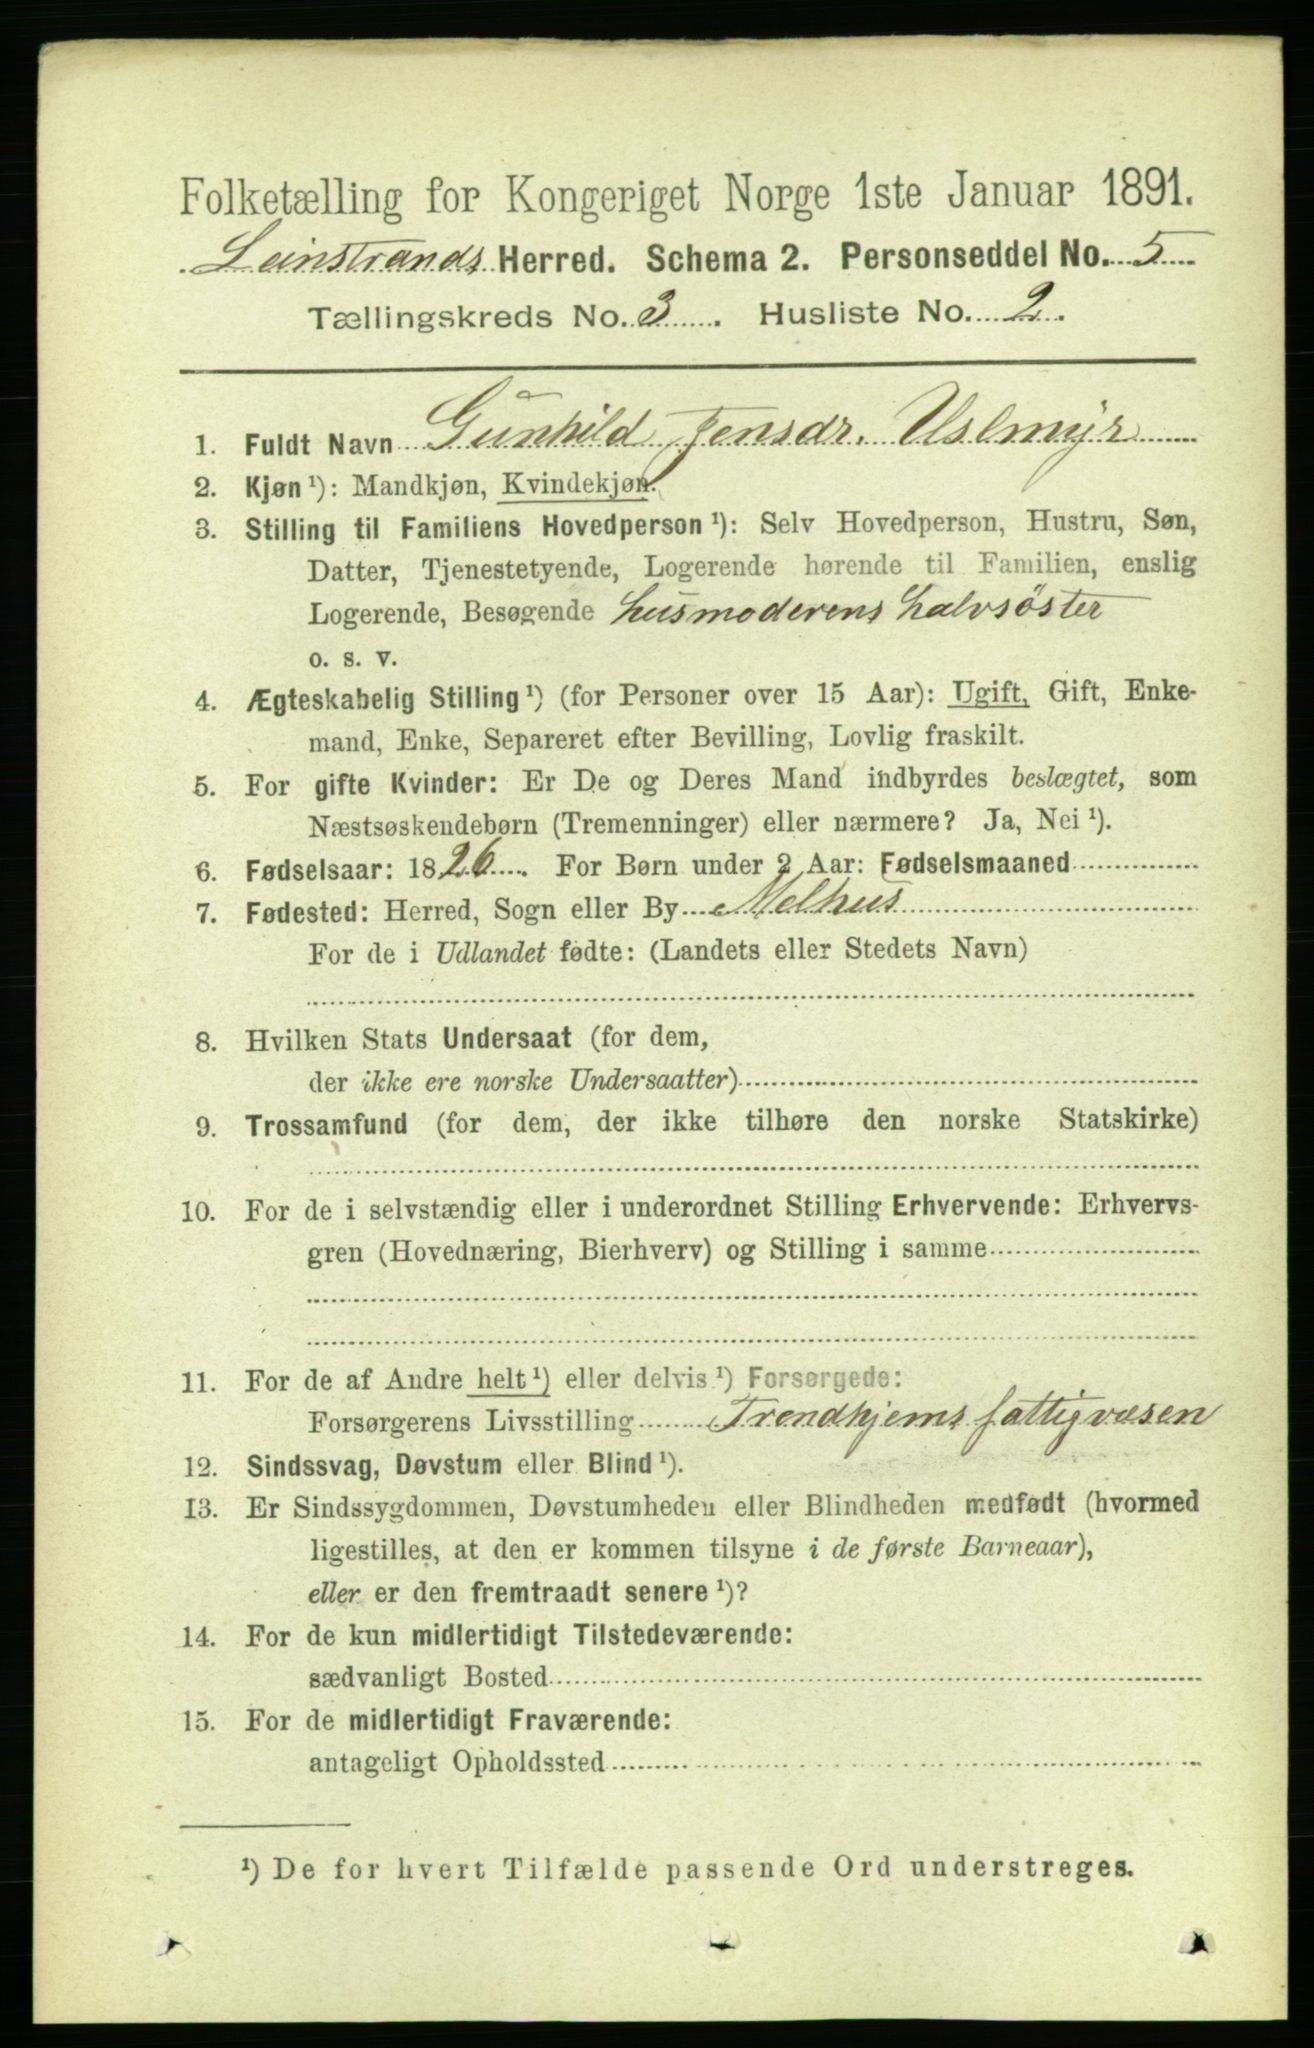 Folketælling for Kongeriget Norge 1ste Januar 1891.
Leinstrands Herred. Schema 2. Personseddel No. 5
Tællingskreds No. 3. Husliste No. 2.
1. Fuldt Navn Gunhild Jensdr. Uslmyr
2. Kjøn¹): Mandkjøn, Kvindekjøn.
3. Stilling til Familiens Hovedperson¹): Selv Hovedperson, Hustru, Søn,
Datter, Tjenestetyende, Logerende hørende til Familien, enslig
Logerende, Besøgende husmoderens halvsöster
o. s. v.
4. Ægteskabelig Stilling¹) (for Personer over 15 Aar): Ugift, Gift, Enke-
mand, Enke, Separeret efter Bevilling, Lovlig fraskilt.
5. For gifte Kvinder: Er De og Deres Mand indbyrdes beslægtet, som
Næstsøskendebørn (Tremenninger) eller nærmere? Ja, Nei¹).
6. Fødselsaar: 1826. For Børn under 2 Aar: Fødselsmaaned
7. Fødested: Herred, Sogn eller By Melhus
For de i Udlandet fødte: (Landets eller Stedets Navn)
8. Hvilken Stats Undersaat (for dem,
der ikke ere norske Undersaatter)
9. Trossamfund (for dem, der ikke tilhøre den norske Statskirke)
10. For de i selvstændig eller i underordnet Stilling Erhvervende: Erhvervs-
gren (Hovednæring, Bierhverv) og Stilling i samme
11. For de af Andre helt¹) eller delvis¹) Forsørgede:
Forsørgerens Livsstilling Trondhjems fattigvæsen
12. Sindssvag, Døvstum eller Blind¹).
13. Er Sindssygdommen, Døvstumheden eller Blindheden medfødt (hvormed
ligestilles, at den er kommen tilsyne i de første Barneaar),
eller er den fremtraadt senere¹)?
14. For de kun midlertidigt Tilstedeværende:
sædvanligt Bosted
15. For de midlertidigt Fraværende:
antageligt Opholdssted
¹) De for hvert Tilfælde passende Ord understreges.